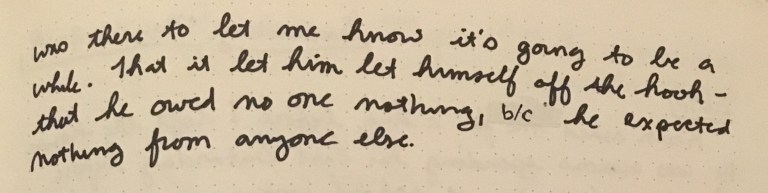 was there to let me know it's going to be a
while. That it let him let himself off the hook -
that he owed no one nothing, b/c he expected
nothing from anyone else.